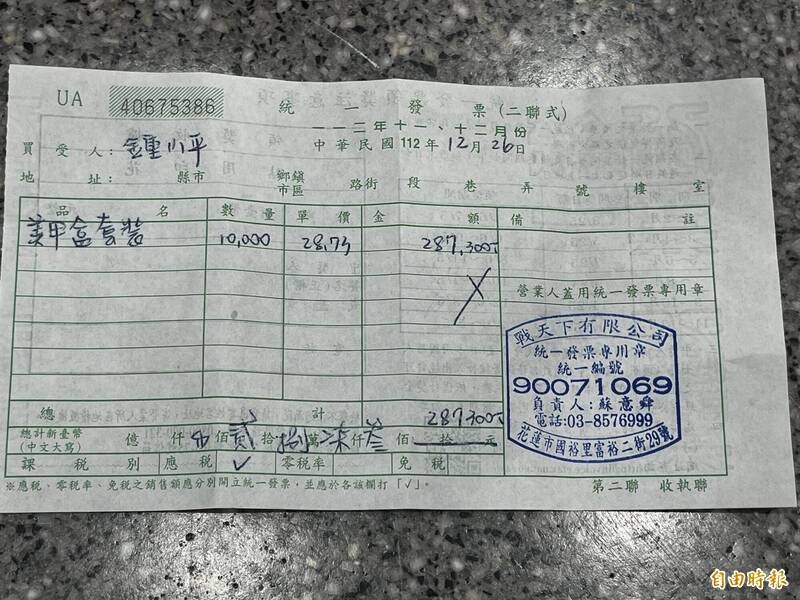 UA 40675386 統一發票(二聯式)
一一二年十一、十二月份
買受人:鍾小平 中華民國112年12月26日
地址: 縣市 鄉鎮市區 路街 段 巷 弄 號 樓 室
品名 數量 單價 金額 備註
美甲盒套裝 10,000 28,73 287,300
營業人蓋用統一發票專用章
戰天下有限公司
統一發票專用章
統一編號
90071069
負責人:蘇意舜
電話:03-8576999
花蓮市國裕里富裕二街29號
總計 287300
總計新臺幣(中文大寫) 億 仟 佰 貳 拾 捌 萬 柒 仟 叁 佰 拾 元
課稅別 應稅 √ 零稅率 免稅
※應稅、零稅率、免稅之銷售額應分別開立統一發票,並應於各該欄打「√」。
第二聯 收執聯
自由時報